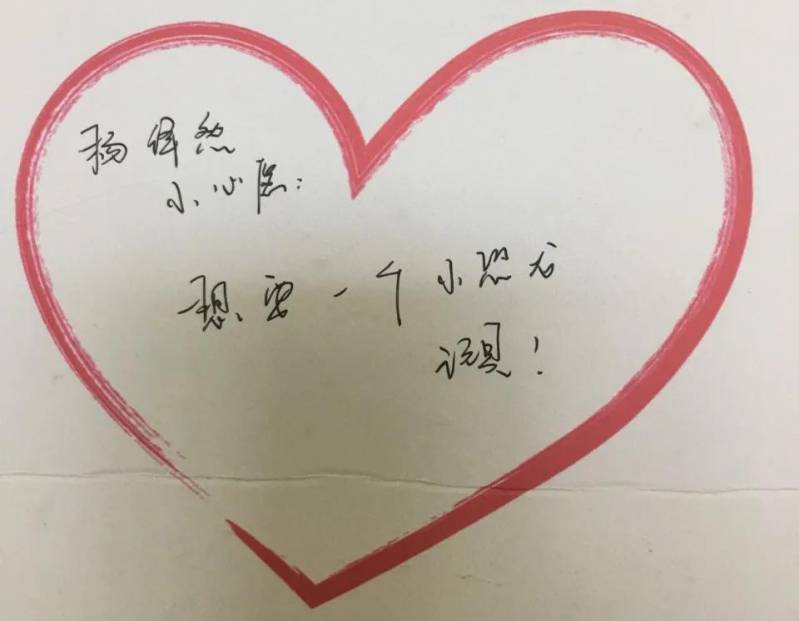 杨倬然
小心愿：
想要一个小恐龙
玩具！